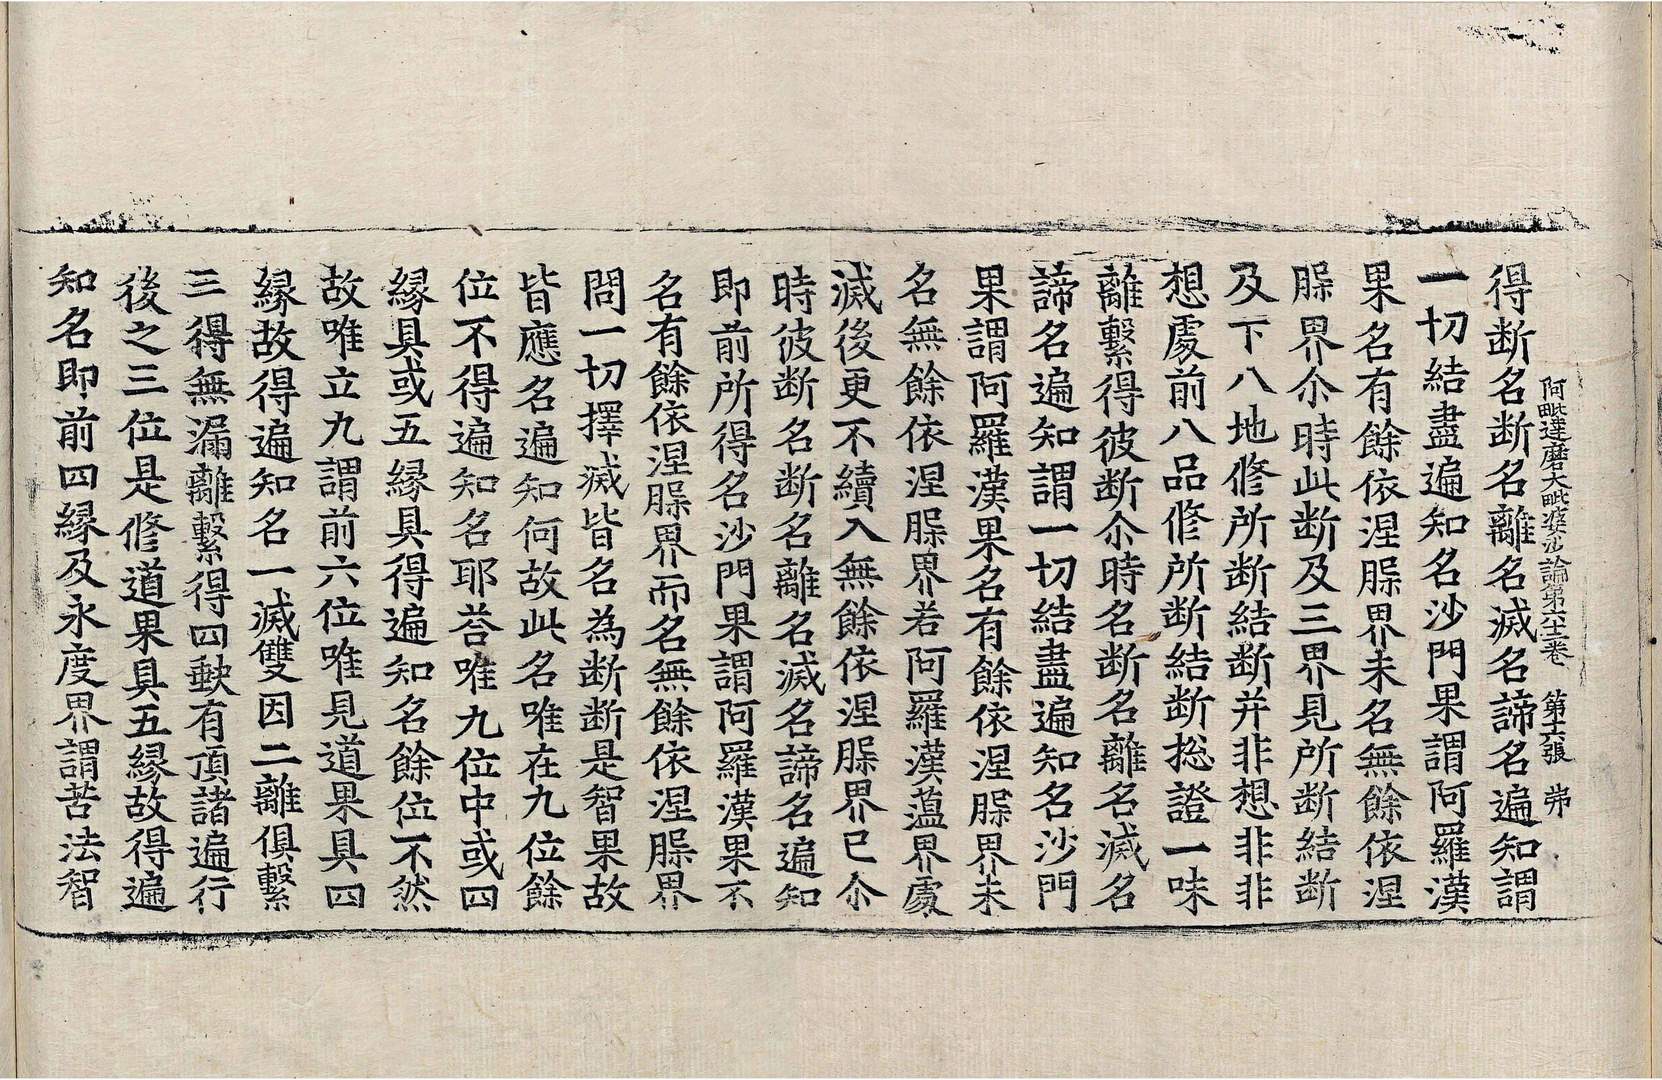 阿毗達磨大毗婆沙論第六十二卷 第十六張 弟
得断名断名離名滅名諦名遍知謂
一切結盡遍知名沙門果謂阿羅漢
果名有餘依涅槃界未名無餘依涅
槃界尒時此断及三界見所断結断
及下八地修所断結断并非想非非
想處前八品修所断結断捴證一味
離繫得彼断尒時名断名離名滅名
諦名遍知謂一切結盡遍知名沙門
果謂阿羅漢果名有餘依涅槃界未
名無餘依涅槃界若阿羅漢蘊界處
滅後更不續入無餘依涅槃界已尒
時彼断名断名離名滅名諦名遍知
即前所得名沙門果謂阿羅漢果不
名有餘依涅槃界而名無餘依涅槃界
問一切擇滅皆名為断断是智果故
皆應名遍知何故此名唯在九位餘
位不得遍知名耶荅唯九位中或四
緣具或五緣具得遍知名餘位不然
故唯立九謂前六位唯見道果具四
緣故得遍知名一滅雙因二離俱繫
三得無漏離繫得四缺有頂諸遍行
後之三位是修道果具五緣故得遍
知名即前四緣及永度界謂苦法智